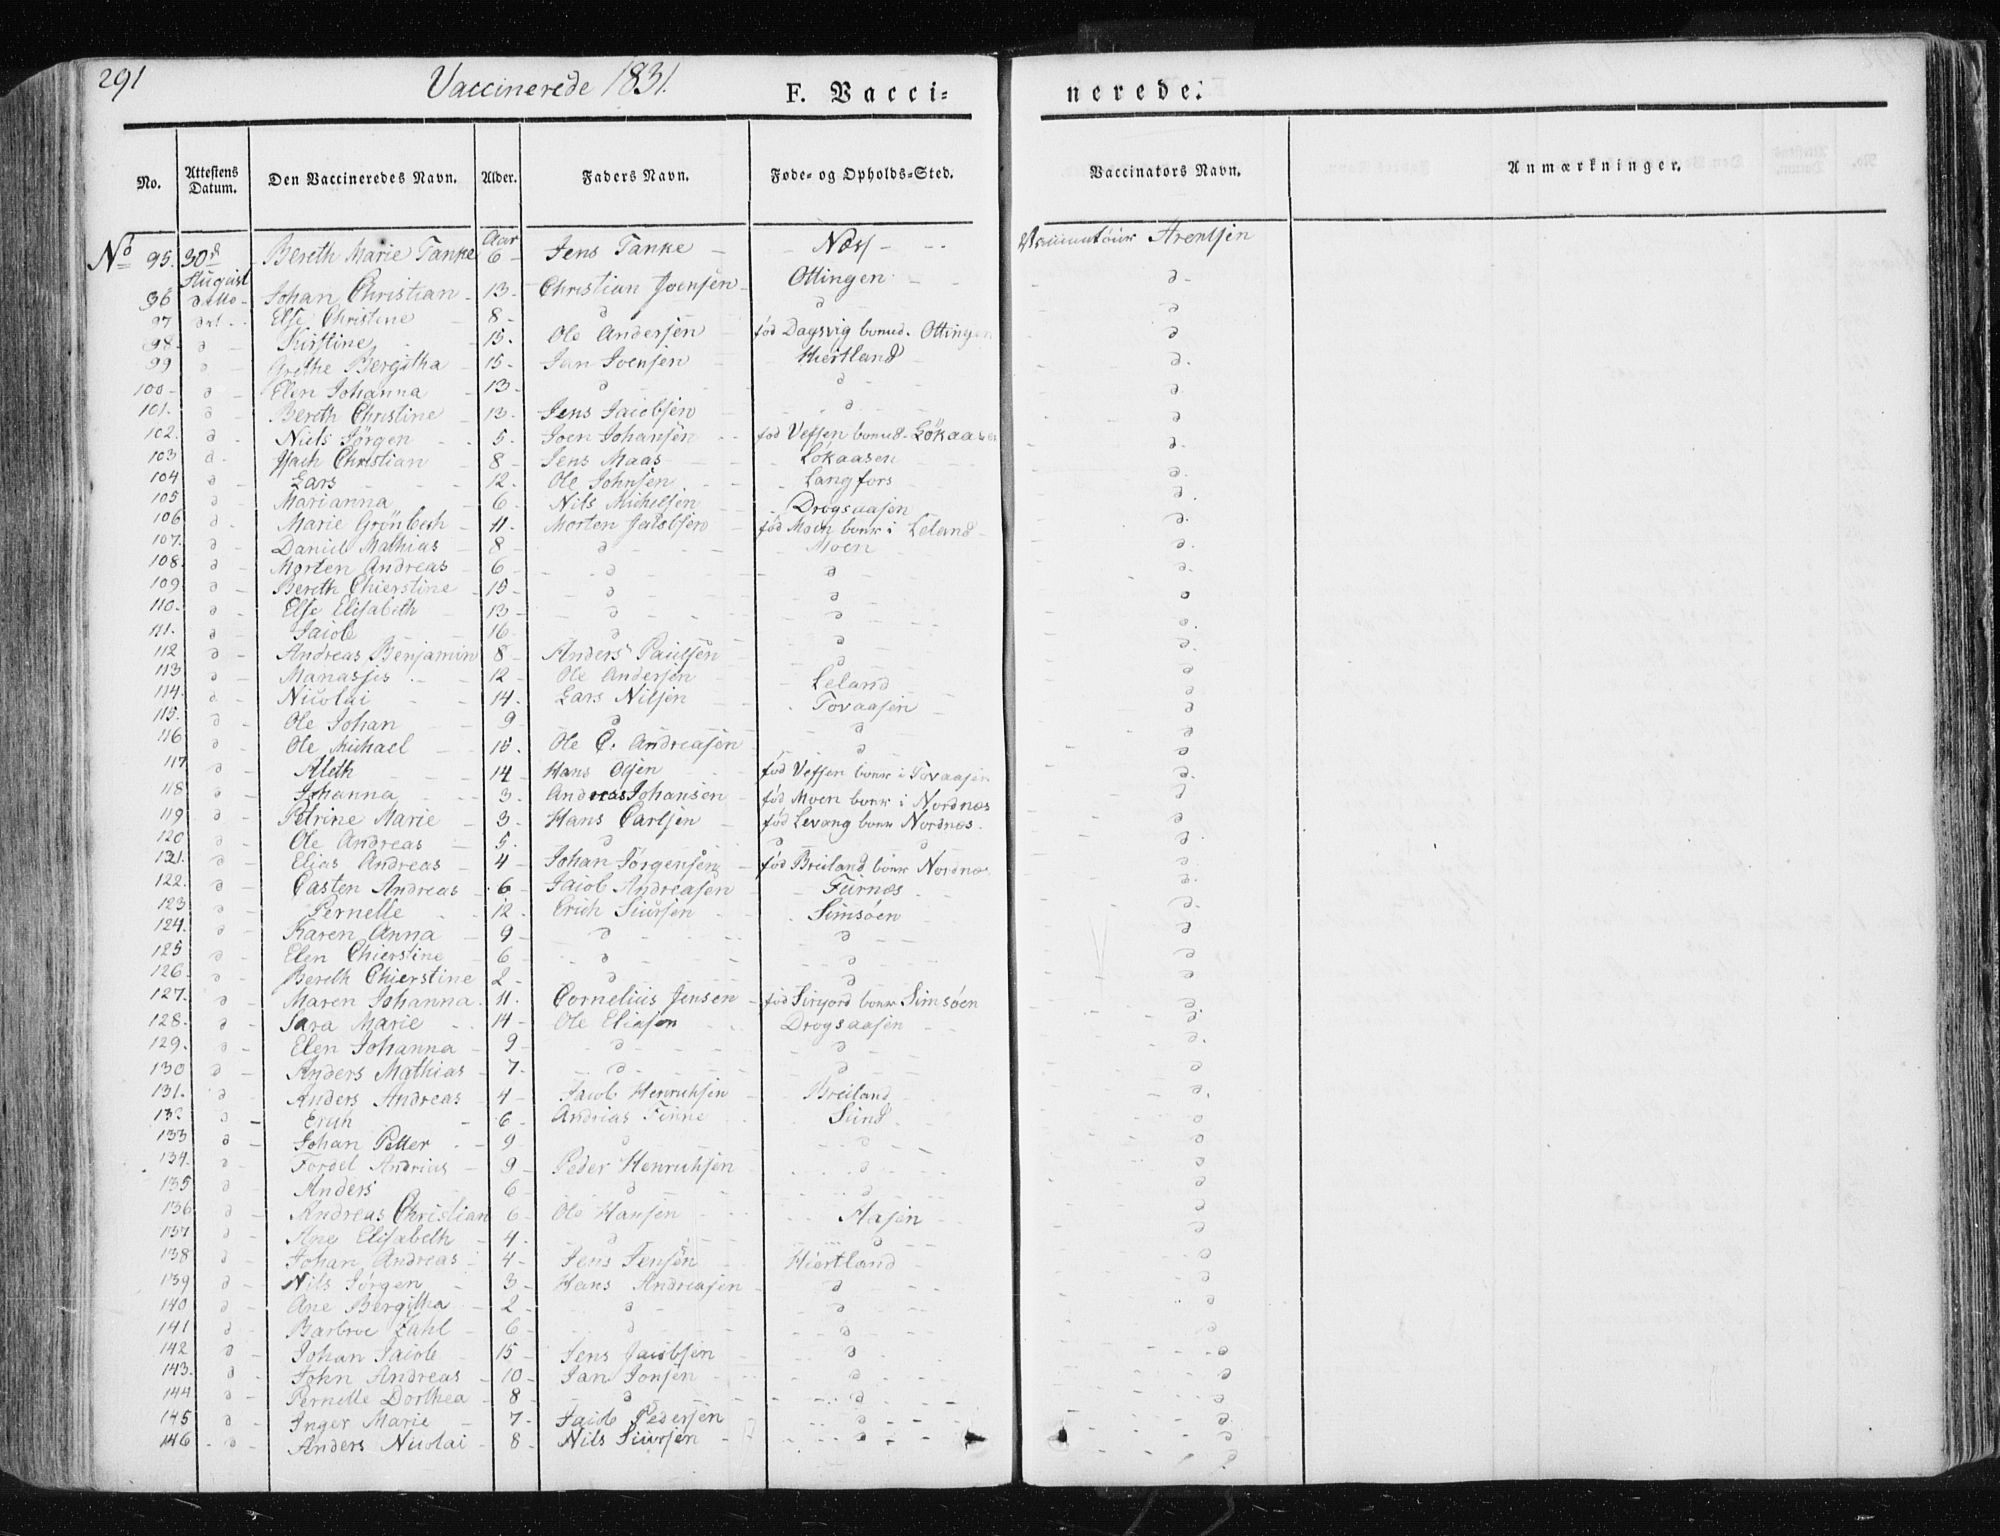 291 Vaccinerede 1831. F. Vacci= nerede.
No. Attestens Datum. Den Vaccineredes Navn. Alder. Faders Navn. Føde- og Opholds-Sted. Vaccinators Navn. Anmærkninger.
No 95. 30d August Bereth Marie Tanke Aar 6 - Jens Tanke - Næss - Arentsen
96 Johan Christian - 13 - Christian Joensen - Ottingen d
97 Else Christine - 8 - d d d
98 d Kirstine 15. Ole Andersen fød Dagsvig Ottingen d
99 d Grethe Bergitha - 15 - Jan Joensen Hiertland d
100 d Elen Johanna 13 - d d d
101. d Bereth Christine 13. Jens Jacobsen d d
102. d Niels Jörgen 5. Joen Johansen fød Vefsen Lökaasen d
103 d Isach Christian 8 Jens Maas Lökaasen d
104 d Lars 12. Ole Johnsen Langfors d
105 d Marianna 6 Nils Michelsen Drogsaasen d
106 d Marie Grönbech 11. Morten Jacobsen fød Moen boner i Leland d
107. d Daniel Mathias 8 d Moen d
108. d Morten Andreas 6 d d d
109 d Bereth Chierstine 15 d d d
110. d Else Elisabeth 13 d d d
111. d Jacob 16 d d d
112 d Andreas Benjamin 8 Anders Paulsen d d
113 d Manasses 12 Ole Andersen Leland d
114. d Nicolai 14 Lars Nilsen Tovaasen d
115. d Ole Johan 9 d d d
116 d Ole Michael 15. Ole C. Andreasen d d
117 d Aleth 14 Hans Olsen fød Vefsen boner i Tovaasen d
118 d Johanna 3. Andreas Johansen fød Moen boner i Nordnæs d
119 d Petrine Marie 3. Hans Carlsen fød Levang boner Nordnæs. d
120 d Ole Andreas 5. d d d
121. d Elias Andreas 4 Johan Jørgensen fød Breiland boner Nordnæs d
122. d Casten Andreas 6 Jacob Andreasen Furnæs d
123 d Pernelle 12 Erich Siursen Simsöen d
124. d Karen Anna 9 d d d
125 d Elen Chierstine 6 d d d
126. d Bereth Chierstine 2 d d d
127. d Maren Johanna 11. Cornelius Jensen fød boner Simsöen d
128. d Sara Marie 14 Ole Eliasen Drogsaasen d
129. d Elen Johanna 9 d d d
130 d Anders Mathias 7. d d d
131. d Anders Andreas 4 Jacob Henrichsen Breiland d
132 d Erich 6 Andreas Finne Sund d
133 d Johan Petter 9 d d d
134. d Fordel Andrias 9 Peder Henrichsen d d
135 d Anders 6 d d d
136 d Andreas Christian 6 Ole Hansen Aasen d
137 d Ane Elisabeth 4. d d d
138 d Johan Andreas 4 Jens Jensen Hiertland d
139 d Nils Jörgen 3 Hans Andreasen d d
140 d Ane Bergitha 2 d d d
141 d Barbroe Zahl 6 d d d
142 d Johan Jacob 15 Jens Jacobsen d d
143. d John Andreas 10 Jan Jonsen d d
144 d Pernelle Dorthea 8 d d d
145 d Inger Marie 7 Jacob Pedersen d d
146 d Anders Nicolai 8 Nils Siursen d d